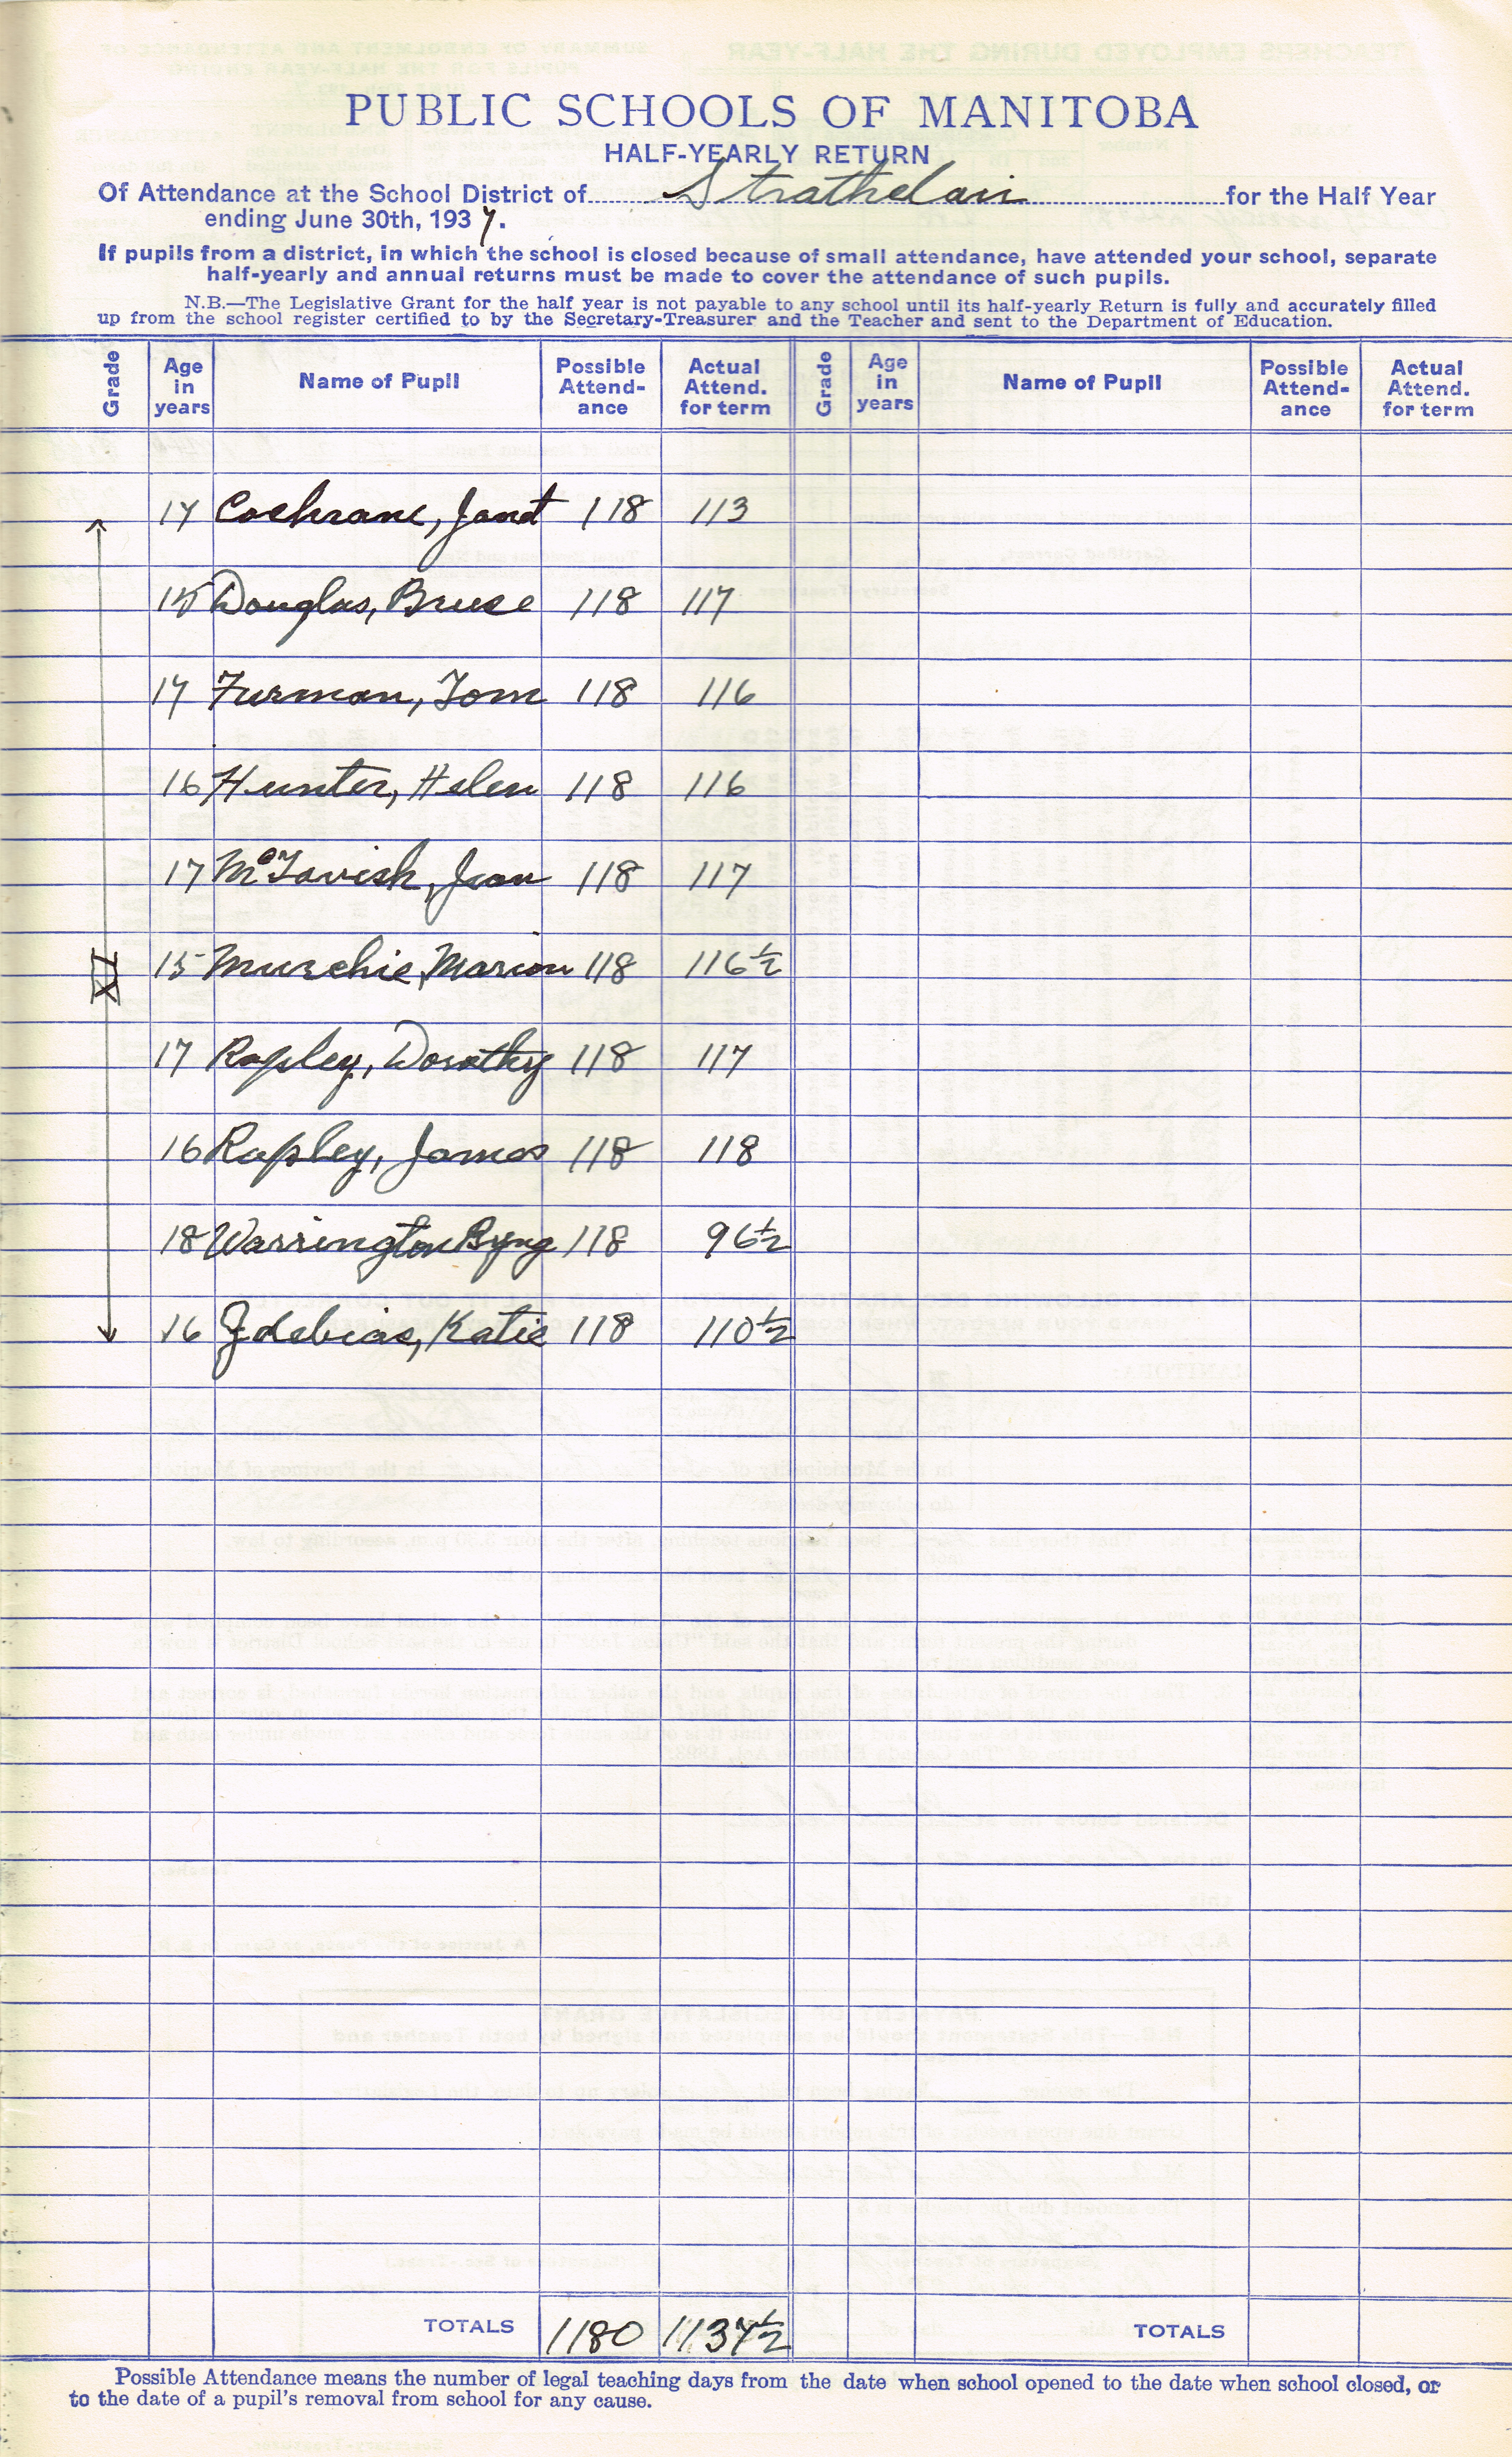 PUBLIC SCHOOLS OF MANITOBA
HALF-YEARLY RETURN
Of Attendance at the School District of Strathclair for the Half Year
ending June 30th, 1937.
If pupils from a district, in which the school is closed because of small attendance, have attended your school, separate
half-yearly and annual returns must be made to cover the attendance of such pupils.
N.B.—The Legislative Grant for the half year is not payable to any school until its half-yearly Return is fully and accurately filled
up from the school register certified to by the Secretary-Treasurer and the Teacher and sent to the Department of Education.
Grade Age in years Name of Pupil Possible Attend-ance Actual Attend. for term Grade Age in years Name of Pupil Possible Attend-ance Actual Attend. for term
17 Cochrane, Janet 118 113
15 Douglas, Bruce 118 117
17 Furman, Tom 118 116
16 Hunter, Helen 118 116
17 McTavish, Jean 118 117
XI 15 Murchie, Marion 118 116½
17 Rapley, Dorothy 118 117
16 Rapley, James 118 118
18 Warrington Byng 118 96½
16 Zdebiac, Katie 118 110½
TOTALS 1180 1137½ TOTALS
Possible Attendance means the number of legal teaching days from the date when school opened to the date when school closed, or
to the date of a pupil's removal from school for any cause.